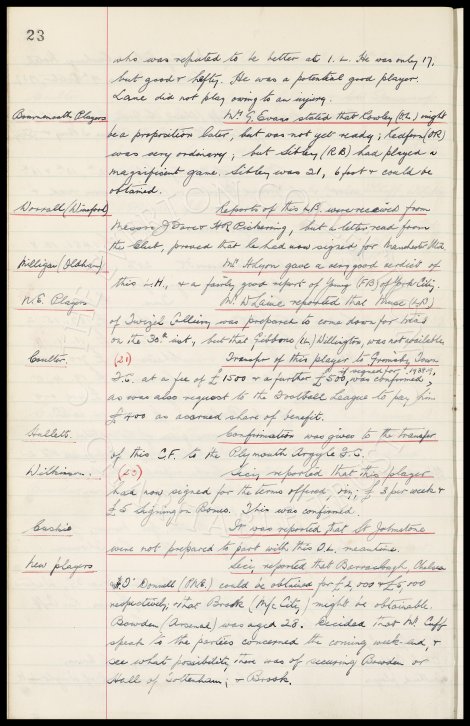 23
who was reputed to be better at I.L. He was only 17,
but good & hefty. He was a potential good player.
Lane did not play owing to an injury.
Bournemouth Players
Mr G. Evans stated that Rowley (O.L.) might
be a proposition later, but was not yet ready; Redfern (OR)
was very ordinary; but Sibley (R.B) had played a
magnificent game. Sibley was 21, 6 foot & could be
obtained.
Worrall (Winsford)
Reports of this were received from
Messrs J. Dover H.R. Pickering, but a letter read from
the Club, proved that he had now signed for Manchester Utd
Milligan (Oldham)
Mr gave a very good verdict of
this L.H., & a fairly good report of Young (F.B) of York City.
N.E. Players
Mr W. Laine, reported that (L.B)
of Colliery was prepared to come down for trial
on the 30th inst, but that Gibbons Willington, was not available
Coulter.
(21)
Transfer of this player to Grimsby Town
F.C. at a fee of £1500 & a further £500, if signed for 1938-9, was confirmed,
as was also request to the Football League to pay him
£400 as accrued share of benefit.
Confirmation was given to the transfer
of this C.F. to the Plymouth Argyle F.C.
Wilkinson.
(22)
Secy. reported that this player
had now signed for the terms offered, viz; £3 per week &
£5 Signing on Bonus. This was confirmed.
It was reported that St Johnstone
were not prepared to part with this meantime.
New players
Secy. reported that Barraclough, Chelsea
& O'Donnell could be obtained for £2,000 & £5,000
respectively; that Brook (M/c City) might be obtainable.
Bowden (Arsenal) was aged 28. Decided that Mr Cuff
speak to the parties concerned the coming week-end, &
see what possibility there was of securing Bowden or
Hall of Tottenham; & Brook.